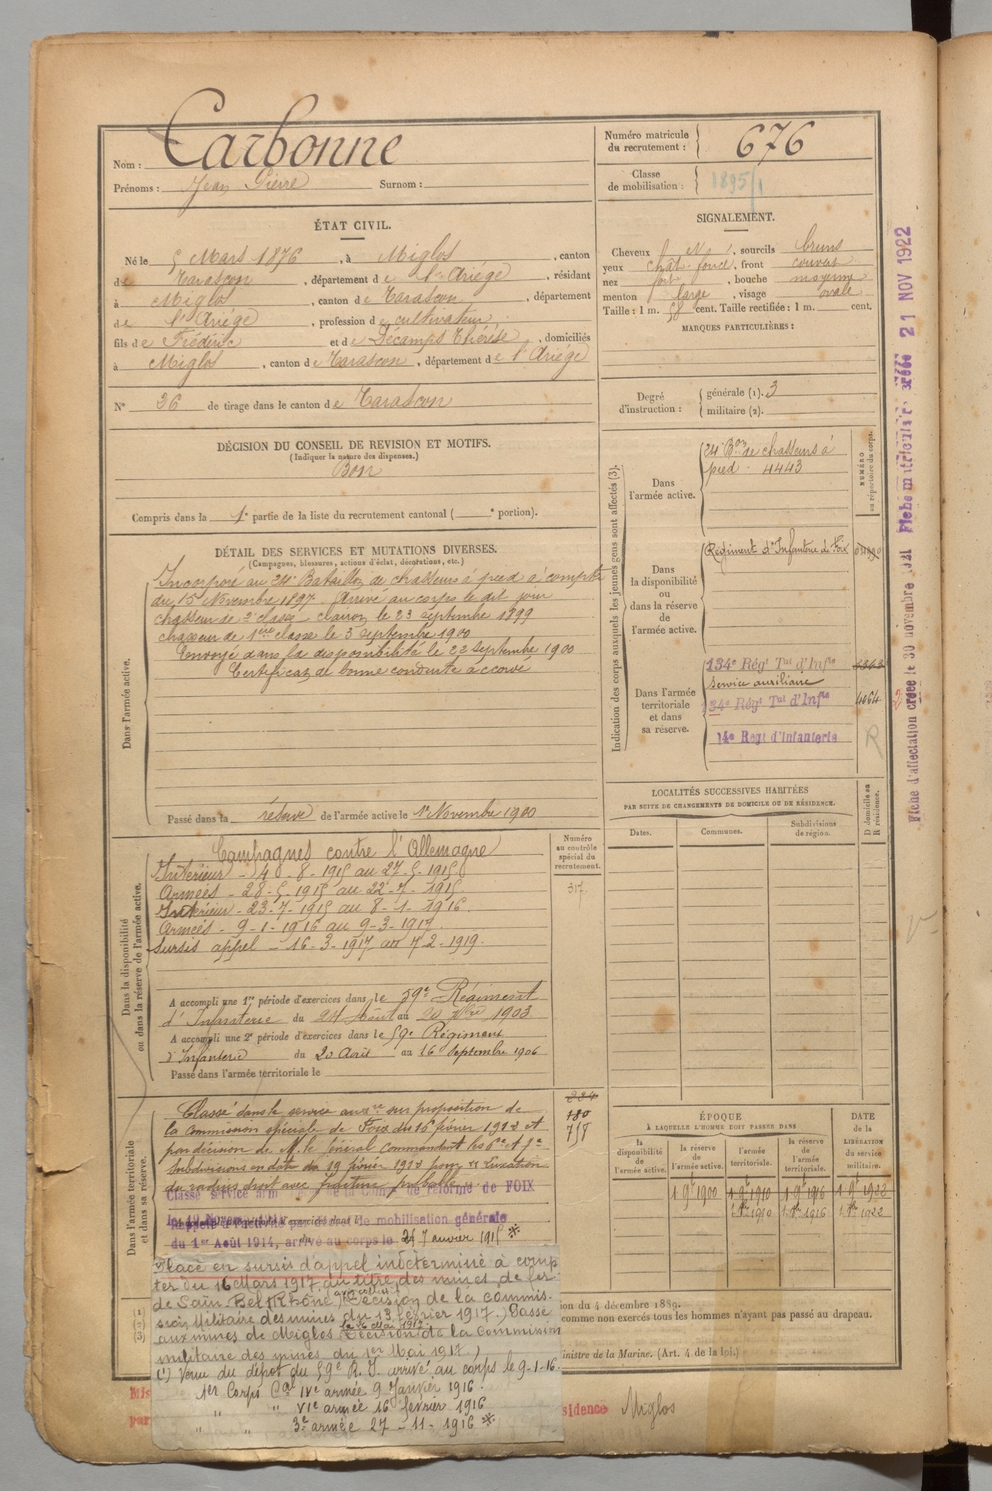 Nom : Carbonne
Prénoms : Jean Pierre Surnom :
Numéro matricule du recrutement : 676
Classe de mobilisation : 1895/1
ÉTAT CIVIL.
Né le 5 Mars 1876, à Miglos, canton
de Tarascon, département de l'Ariége, résidant
à Miglos, canton de Tarascon, département
de l'Ariége, profession de cultivateur
fils de Frédéric et de Décamps Thérèse, domiciliés
à Miglos, canton de Tarascon, département de l'Ariége
N° 36 de tirage dans le canton de Tarascon
SIGNALEMENT.
Cheveux, sourcils bruns
yeux chât. foncé, front couvert
nez fort, bouche moyenne
menton large, visage ovale
Taille : 1 m. 58 cent. Taille rectifiée : 1 m. cent.
MARQUES PARTICULIÈRES :
Degré d'instruction : générale (1). 3
militaire (2).
DÉCISION DU CONSEIL DE REVISION ET MOTIFS.
(Indiquer la nature des dispenses.)
Bon
Compris dans la 1e partie de la liste du recrutement cantonal ( e portion).
DÉTAIL DES SERVICES ET MUTATIONS DIVERSES.
(Campagnes, blessures, actions d'éclat, décorations, etc.)
Dans l'armée active.
Incorporé au 24e Bataillon de chasseurs à pied à compter
du 15 Novembre 1897. Arrivé au corps le dit jour
chasseur de 2e classe clairon le 23 septembre 1899
chasseur de 1ere classe le 3 septembre 1900
Envoyé dans la disponibilité le 22 septembre 1900
Certificat de bonne conduite accordé
Passé dans la réserve de l'armée active le 1er Novembre 1900
Indication des corps auxquels les jeunes gens sont affectés (3).
NUMÉRO au répertoire du corps.
Dans l'armée active.
24e Bon de chasseurs à
pied 4443
Dans la disponibilité ou dans la réserve de l'armée active.
Régiment d'Infanterie de Foix
Dans l'armée territoriale et dans sa réserve.
134e Régt Tal d'Infie
Service auxiliaire
134e Régt Tal d'Infie 4064
14e Régt d'Infanterie
R
LOCALITÉS SUCCESSIVES HABITÉES
PAR SUITE DE CHANGEMENTS DE DOMICILE OU DE RÉSIDENCE.
Dates. Communes. Subdivisions de région. D domicile ou R résidence.
Dans la disponibilité ou dans la réserve de l'armée active.
Numéro au contrôle spécial du recrutement.
317.
Campagnes contre l'Allemagne
Intérieur - 4 - 8 - 1915 au 27-5-1915
Armées - 28-5-1915 au 22-7-1915
Intérieur - 23-7-1915 au 8-1-1916.
Armées - 9-1-1916 au 9-3-1917
Sursis appel - 16-3-1917 au 7-2-1919.
A accompli une 1re période d'exercices dans le 59e Régiment
d'Infanterie du 24 Août au 20 7bre 1903
A accompli une 2e période d'exercices dans le 59e Régiment
d'Infanterie du 20 Août au 16 Septembre 1906
Passé dans l'armée territoriale le
Dans l'armée territoriale et dans sa réserve.
234
180
718
Classé dans le service auxre sur proposition de
la commission spéciale de Foix du 16 février 1912 et
par décision de M. le Général commandant les
subdivisions en date du 19 février 1912 pour Luxation
du radius droit avec fracture probable.
Classé service armé de réforme de FOIX
Rappelé à l'activité de mobilisation générale
du 1er Août 1914, arrivé au corps le 27 janvier 1915
Placé en sursis d'appel indéterminé à comp
ter du 16 Mars 1917 au titre des mines de fer
de Sain Bel (Rhône) Décision de la commis.
sion Militaire des mines du 13 février 1917.) Passé
aux mines de Miglos le 16 Mai 1917 (Décision de la Commission
militaire des mines du 1er Mai 1917.)
(1) Venu du dépôt du 59e R.I. arrivé au corps le 9-1-16.
1er Corps Cal IVe armée 9 Janvier 1916.
" " VIe armée 16 février 1916
" " 3e armée 27-11-1916
ÉPOQUE
À LAQUELLE L'HOMME DOIT PASSER DANS
la disponibilité de l'armée active. la réserve de l'armée active. l'armée territoriale. la réserve de l'armée territoriale.
DATE de la LIBÉRATION du service militaire.
1 9e 1900 1 9e 1910 1 9e 1916 1 9e 1922
1 9bre 1910 1 9bre 1916 1 9bre 1922
ion du 4 décembre 1889.
comme non exercés tous les hommes n'ayant pas passé au drapeau.
inistre de la Marine. (Art. 4 de la loi.)
sidence Miglos
Fiche d'affectation créée le 30 novembre 1921 Fiche matriculaire créée 21 NOV 1922